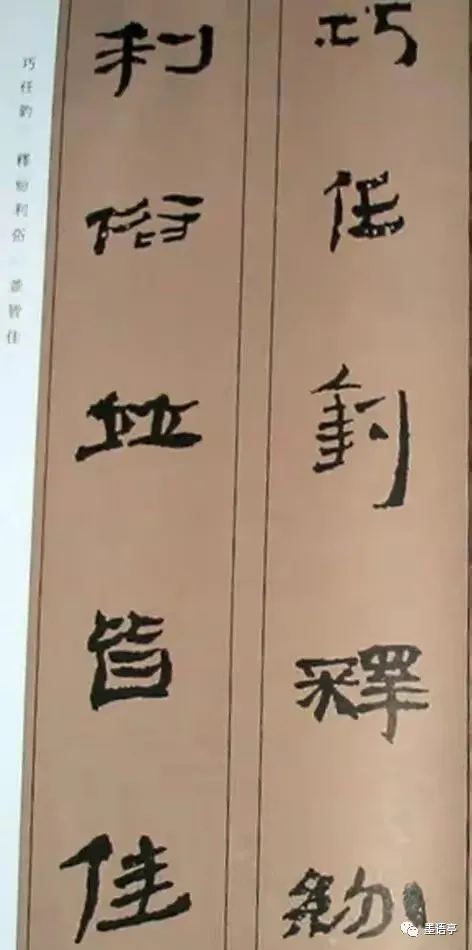 巧任釣釋紛
利俗並皆佳
巧任釣 釋紛利俗 並皆佳
墨语亭